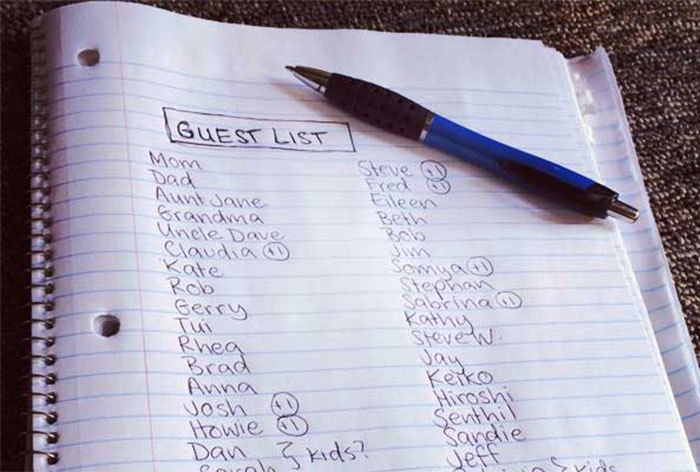 GUEST LIST
Mom
Dad
Aunt Jane
Grandma
Uncle Dave
Claudia +1
Kate
Rob
Gerry
Tui
Rhea
Brad
Anna
Josh +1
Howie +1
Dan } kids?
Sarah
Steve +1
Fred +1
Eileen
Beth
Bob
Jim
Somya +1
Stephan
Sabrina +1
Kathy
Steve W.
Jay
Keiko
Hiroshi
Senthil
Sandie
Jeff